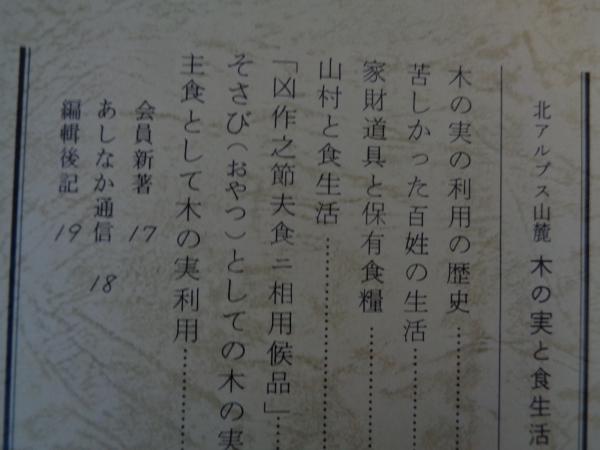 北アルプス山麓 木の実と食生活
木の実の利用の歴史
苦しかった百姓の生活
家財道具と保有食糧
山村と食生活
「凶作之節夫食ニ相用候品」
そさび(おやつ)としての木の実
主食として木の実利用
会員新著 17
あしなか通信 18
編輯後記 19